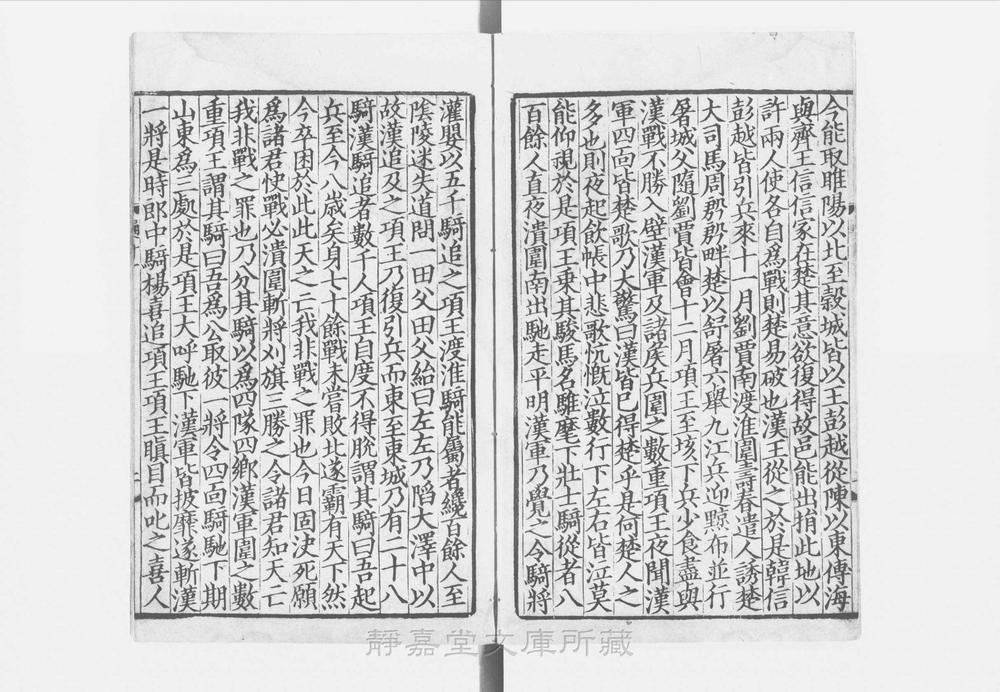 今能取睢陽以北至穀城皆以王彭越從陳以東傅海
與齊王信信家在楚其意欲復得故邑能出捐此地以
許兩人使各自爲戰則楚易破也漢王從之於是韓信
彭越皆引兵來十一月劉賈南渡淮圍壽春遣人誘楚
大司馬周殷殷畔楚以舒屠六舉九江兵迎黥布並行
屠城父隨劉賈皆會十二月項王至垓下兵少食盡與
漢戰不勝入壁漢軍及諸侯兵圍之數重項王夜聞漢
軍四面皆楚歌乃大驚曰漢皆已得楚乎是何楚人之
多也則夜起飲帳中悲歌忼慨泣數行下左右皆泣莫
能仰視於是項王乘其駿馬名騅麾下壯士騎從者八
百餘人直夜潰圍南出馳走平明漢軍乃覺之令騎將
灌嬰以五千騎追之項王渡淮騎能屬者纔百餘人至
陰陵迷失道問一田父田父紿曰左左乃陷大澤中以
故漢追及之項王乃復引兵而東至東城乃有二十八
騎漢騎追者數千人項王自度不得脫謂其騎曰吾起
兵至今八歲矣身七十餘戰未嘗敗北遂霸有天下然
今卒困於此此天之亡我非戰之罪也今日固決死願
爲諸君快戰必潰圍斬將刈旗三勝之令諸君知天亡
我非戰之罪也乃分其騎以爲四隊四鄉漢軍圍之數
重項王謂其騎曰吾爲公取彼一將令四面騎馳下期
山東爲三處於是項王大呼馳下漢軍皆披靡遂斬漢
一將是時郎中騎楊喜追項王項王瞋目而叱之喜人
靜嘉堂文庫所藏